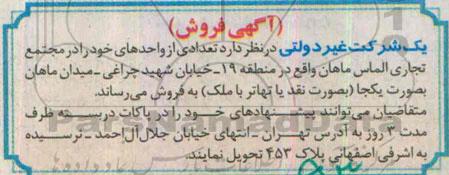 (آگهی فروش)
یک شرکت غیر دولتی در نظر دارد تعدادی از واحدهای خود را در مجتمع
تجاری الماس ماهان واقع در منطقه ۱۹_خیابان شهید چراغی_میدان ماهان
بصورت یکجا (بصورت نقد یا تهاتر با ملک) به فروش می‌رساند.
متقاضیان می‌توانند پیشنهادهای خود را در پاکات دربسته ظرف
مدت ۳ روز به آدرس تهران_انتهای خیابان جلال‌آل‌احمد_نرسیده
به اشرفی اصفهانی پلاک ۴۵۳ تحویل نمایند.